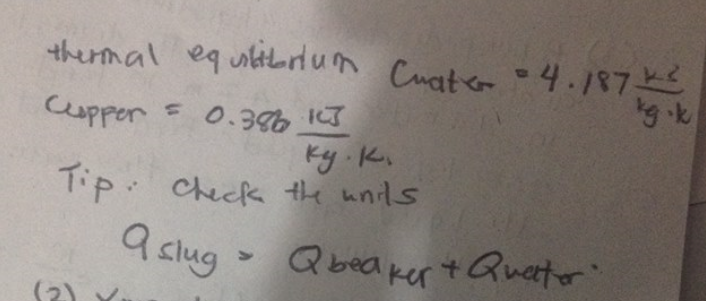 thermal equilibrium Cwater = 4.187 kJ/kg·K
Ccopper = 0.386 kJ/kg·K.
Tip: check the units
Qslug = Qbeaker + Qwater.
(2)